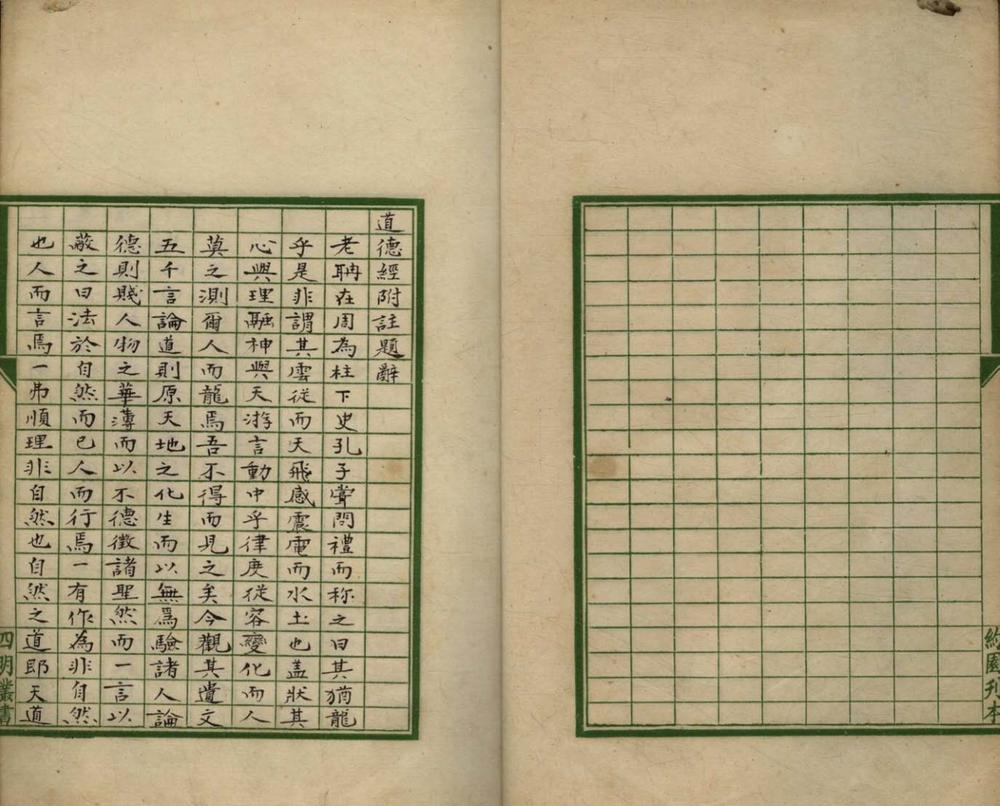 道德經附註題辭
老聃在周為柱下史孔子嘗問禮而称之曰其猶龍
乎是非謂其雲從而天飛感震電而水土也蓋狀其
心與理融神與天游言動中乎律度從容變化而人
莫之測爾人而龍焉吾不得而見之矣今觀其遺文
五千言論道則原天地之化生而以無爲驗諸人論
德則賤人物之華薄而以不德徵諸聖然而一言以
蔽之曰法於自然而已人而行焉一有作為非自然
也人而言焉一弗順理非自然也自然之道即天道
四明叢書
約園刋本